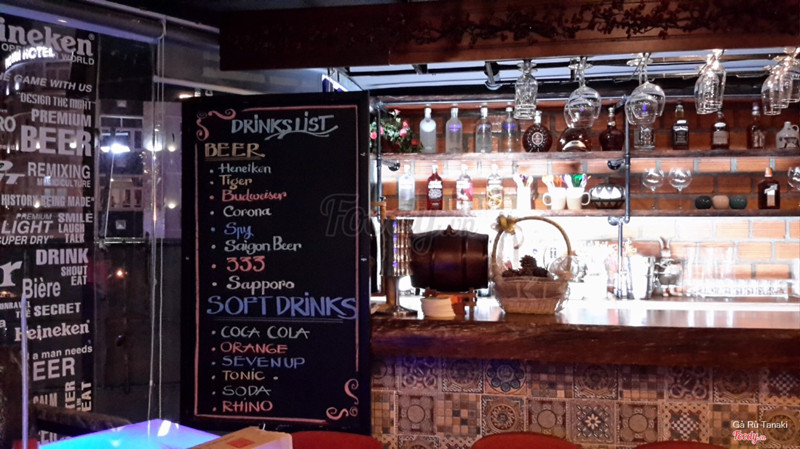 ineken
OPEN
WORLD
HOTEL
GAME WITH US
"DESIGN THE NIGHT
PREMIUM
BEER
REMIXING
MUSIC CULTURE
HISTORY BEING MADE"
PREMIUM
LIGHT
SUPER DRY"
SMILE
LAUGH
TALK
DRINK
SHOUT
EAT
Bière
UNRAVEL
THE SECRET
Heineken
a man needs
BEER
CALM
EAT
DRINKS LIST
BEER
• Heneiken
• Tiger
• Budweiser
• Corona
• Spy
• Saigon Beer
• 333
• Sapporo
SOFT DRINKS
• COCA COLA
• ORANGE
• SEVEN UP
• TONIC
• SODA
• RHINO
Foody.vn
Gà Rù Tanaki
Foody.vn